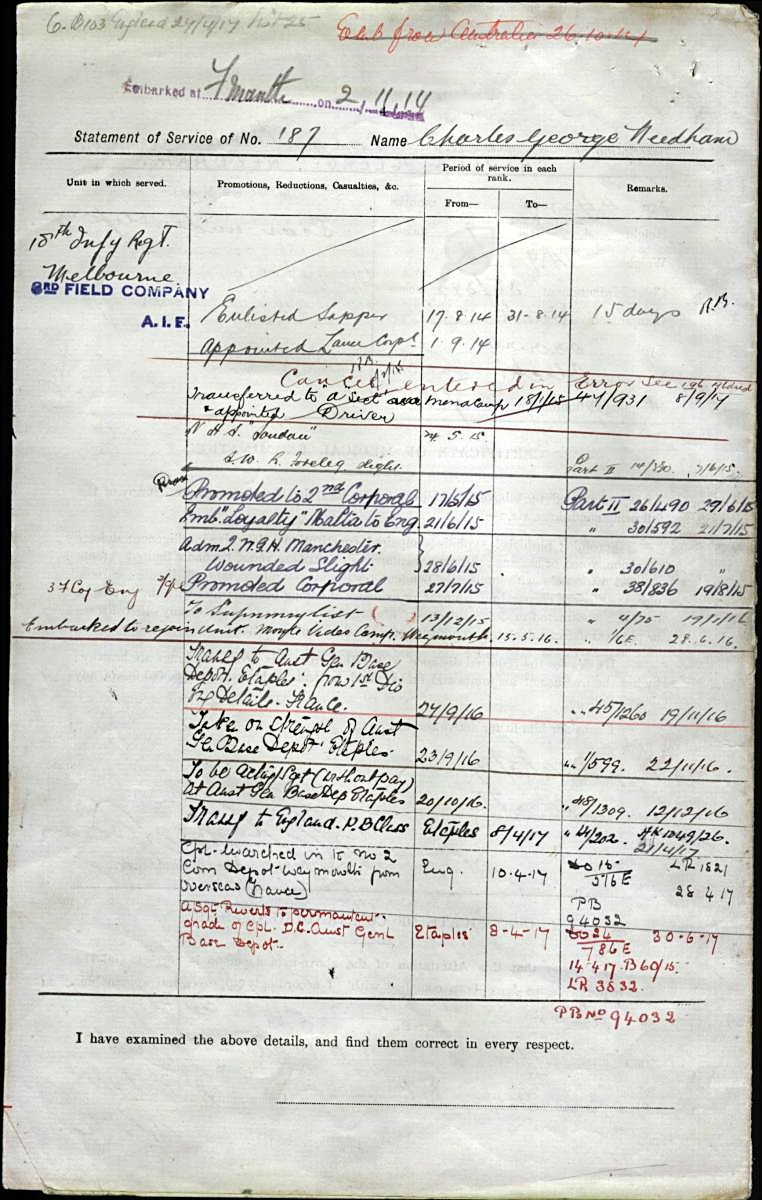 England 24/4/17
Emb from Australia 26.10.14
Embarked at F'mantle on 2/11/14
Statement of Service of No. 187 Name Charles George Needham
Unit in which served.
Promotions, Reductions, Casualties, &c.
Period of service in each rank.
From—
To—
Remarks.
Infy Regt.
Melbourne
3RD FIELD COMPANY
A.I.F.
Enlisted Sapper 17.8.14 31-8.14 15 days
Appointed Lance Corpl 1.9.14
Cancel, entered in Error See
Transferred to "A" Sect Mena Camp 18/1/15 47/931 8/9/17
& appointed Driver
5.15.
Part II 7/6/15
Promoted to 2nd Corporal 17/5/15 Part II 26/490 29/6/15
Emb "Loyalty" Malta to Eng 21/6/15 " 30/592 21/7/15
Adm 2. W.G.H. Manchester.
Wounded Slight 28/6/15 " 30/610 "
Promoted Corporal 27/7/15 " 38/836 19/8/15
To Supnumy list 13/12/15
Embarked to rejoin Unit. Monte Video Camp. Weymouth 15.5.16. " 28.6.16.
Transf to Aust Gen Base
Depot. Etaples. from 1st Div
Details. France. 27/9/16 " 45/1260 19/11/16
Taken on Strength of Aust
Gen Base Depot Etaples. 23/9/16 " 1/599. 22/11/16.
To be acting Sgt (without pay)
at Aust Gen Base Dep Etaples 20/10/16. " 48/1309. 12/12/16
Transf to England. P.B Class Etaples 8/4/17 " 14/202. AK 1049/26.
21/4/17
Cpl. marched in to No 2
Com Depot Weymouth from Eng. 10.4.17 LR 1821
overseas (France) 516E 28 4 17
PB
94032
A/Sgt Reverts to permanent
grade of Cpl. D.C. Aust Genl Etaples 8-4-17 30-6-17
Base Depot- 786E
14.4.17. B60/15.
LR 3832.
PB No 94032
I have examined the above details, and find them correct in every respect.